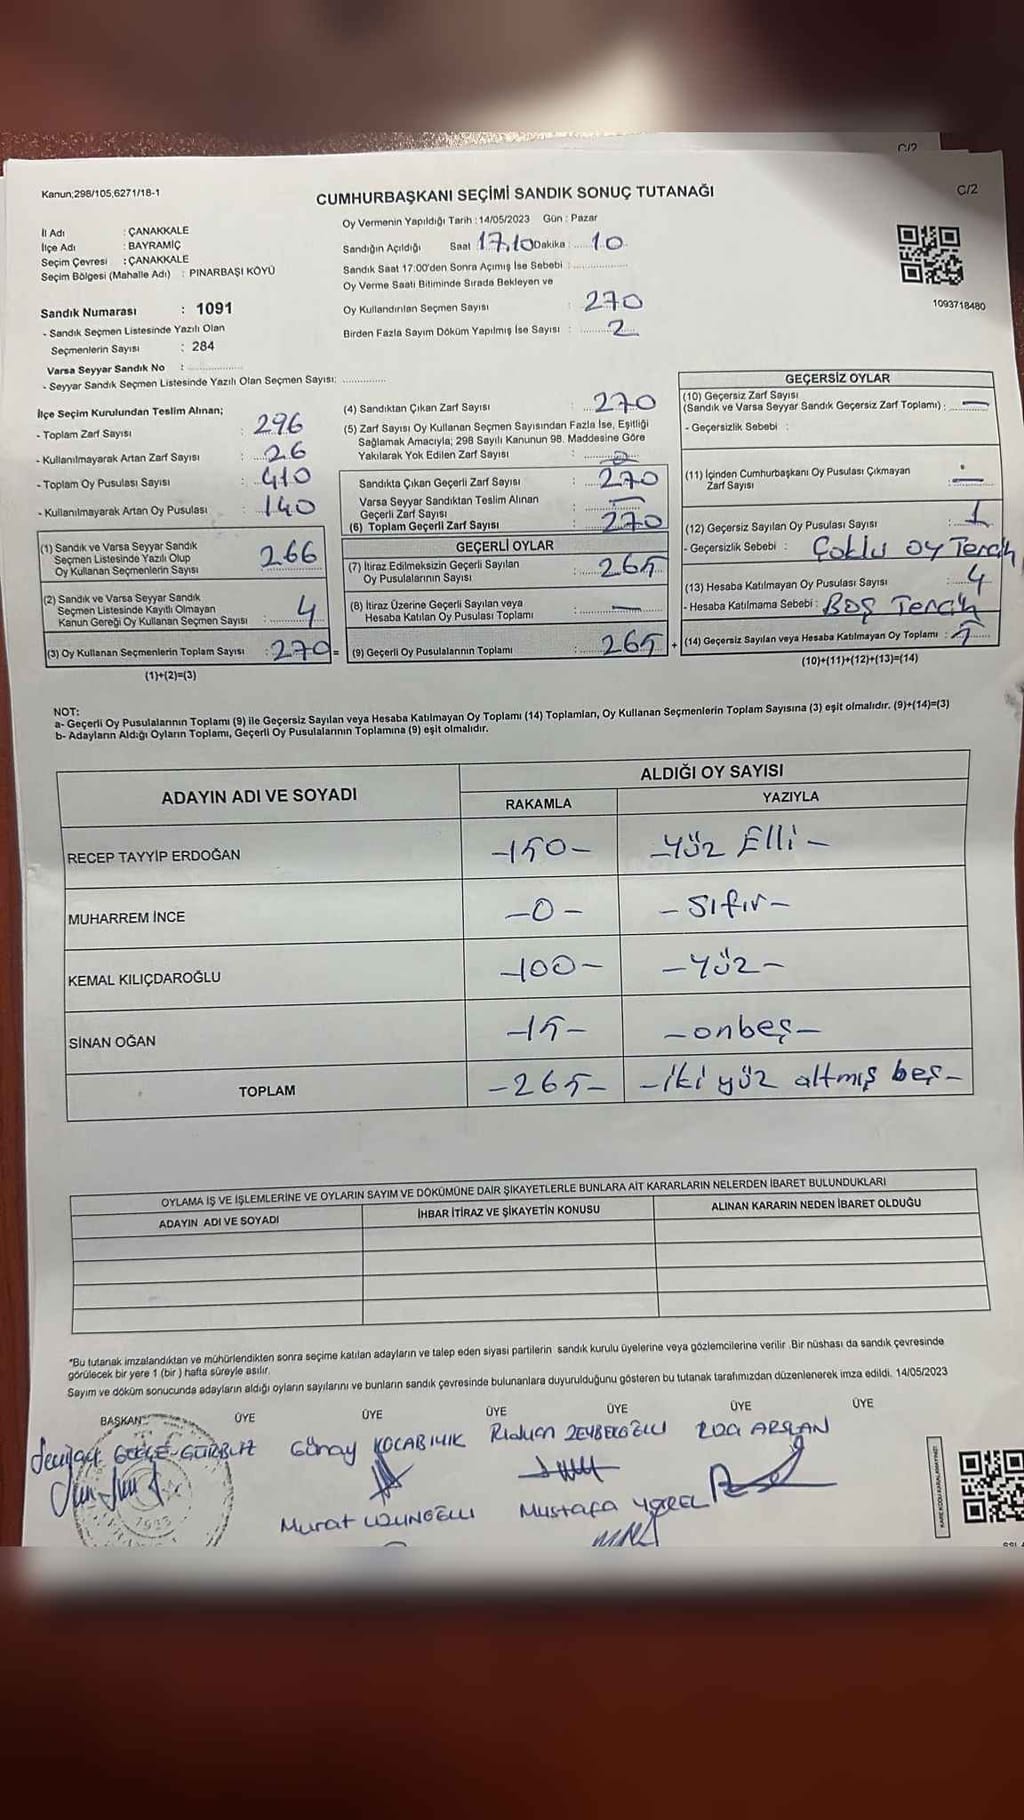 C/2
Kanun;298/105,6271/18-1
CUMHURBAŞKANI SEÇİMİ SANDIK SONUÇ TUTANAĞI
C/2
Oy Vermenin Yapıldığı Tarih : 14/05/2023 Gün : Pazar
İl Adı : ÇANAKKALE
İlçe Adı : BAYRAMİÇ
Seçim Çevresi : ÇANAKKALE
Seçim Bölgesi (Mahalle Adı) : PINARBAŞI KÖYÜ
Sandığın Açıldığı Saat 17.10 Dakika : 10
Sandık Saat 17:00'den Sonra Açımış İse Sebebi :
Oy Verme Saati Bitiminde Sırada Bekleyen ve
Oy Kullandırılan Seçmen Sayısı : 270
Birden Fazla Sayım Döküm Yapılmış İse Sayısı : 2
1093718480
Sandık Numarası : 1091
- Sandık Seçmen Listesinde Yazılı Olan
Seçmenlerin Sayısı : 284
Varsa Seyyar Sandık No :
- Seyyar Sandık Seçmen Listesinde Yazılı Olan Seçmen Sayısı:
İlçe Seçim Kurulundan Teslim Alınan;
- Toplam Zarf Sayısı : 296
- Kullanılmayarak Artan Zarf Sayısı : 26
- Toplam Oy Pusulası Sayısı : 410
- Kullanılmayarak Artan Oy Pusulası : 140
(1) Sandık ve Varsa Seyyar Sandık
Seçmen Listesinde Yazılı Olup
Oy Kullanan Seçmenlerin Sayısı 266
(2) Sandık ve Varsa Seyyar Sandık
Seçmen Listesinde Kayıtlı Olmayan
Kanun Gereği Oy Kullanan Seçmen Sayısı : 4
(3) Oy Kullanan Seçmenlerin Toplam Sayısı : 270 =
(1)+(2)=(3)
(4) Sandıktan Çıkan Zarf Sayısı : 270
(5) Zarf Sayısı Oy Kullanan Seçmen Sayısından Fazla İse, Eşitliği
Sağlamak Amacıyla; 298 Sayılı Kanunun 98. Maddesine Göre
Yakılarak Yok Edilen Zarf Sayısı :
Sandıkta Çıkan Geçerli Zarf Sayısı : 270
Varsa Seyyar Sandıktan Teslim Alınan
Geçerli Zarf Sayısı : —
(6) Toplam Geçerli Zarf Sayısı : 270
GEÇERLİ OYLAR
(7) İtiraz Edilmeksizin Geçerli Sayılan
Oy Pusulalarının Sayısı : 265
(8) İtiraz Üzerine Geçerli Sayılan veya
Hesaba Katılan Oy Pusulası Toplamı : —
(9) Geçerli Oy Pusulalarının Toplamı : 265 +
GEÇERSİZ OYLAR
(10) Geçersiz Zarf Sayısı
(Sandık ve Varsa Seyyar Sandık Geçersiz Zarf Toplamı) : —
- Geçersizlik Sebebi :
(11) İçinden Cumhurbaşkanı Oy Pusulası Çıkmayan
Zarf Sayısı : —
(12) Geçersiz Sayılan Oy Pusulası Sayısı : 1
- Geçersizlik Sebebi : Çoklu oy Tercih
(13) Hesaba Katılmayan Oy Pusulası Sayısı : 4
- Hesaba Katılmama Sebebi : Boş Tercih
(14) Geçersiz Sayılan veya Hesaba Katılmayan Oy Toplamı : 5
(10)+(11)+(12)+(13)=(14)
NOT:
a- Geçerli Oy Pusulalarının Toplamı (9) ile Geçersiz Sayılan veya Hesaba Katılmayan Oy Toplamı (14) Toplamları, Oy Kullanan Seçmenlerin Toplam Sayısına (3) eşit olmalıdır. (9)+(14)=(3)
b- Adayların Aldığı Oyların Toplamı, Geçerli Oy Pusulalarının Toplamına (9) eşit olmalıdır.
ADAYIN ADI VE SOYADI ALDIĞI OY SAYISI
RAKAMLA YAZIYLA
RECEP TAYYİP ERDOĞAN -150- -Yüz Elli-
MUHARREM İNCE -0- -Sıfır-
KEMAL KILIÇDAROĞLU -100- -Yüz-
SİNAN OĞAN -15- -onbeş-
TOPLAM -265- -iki yüz altmış beş-
OYLAMA İŞ VE İŞLEMLERİNE VE OYLARIN SAYIM VE DÖKÜMÜNE DAİR ŞİKAYETLERLE BUNLARA AİT KARARLARIN NELERDEN İBARET BULUNDUKLARI
ADAYIN ADI VE SOYADI İHBAR İTİRAZ VE ŞİKAYETİN KONUSU ALINAN KARARIN NEDEN İBARET OLDUĞU
*Bu tutanak imzalandıktan ve mühürlendikten sonra seçime katılan adayların ve talep eden siyasi partilerin sandık kurulu üyelerine veya gözlemcilerine verilir .Bir nüshası da sandık çevresinde
görülecek bir yere 1 (bir ) hafta süreyle asılır.
Sayım ve döküm sonucunda adayların aldığı oyların sayılarını ve bunların sandık çevresinde bulunanlara duyurulduğunu gösteren bu tutanak tarafımızdan düzenlenerek imza edildi. 14/05/2023
BAŞKAN ÜYE ÜYE ÜYE ÜYE ÜYE ÜYE
GÖKÇE GÜRBÜZ Günay KOCABIYIK Rıdvan ZEYBEKOĞLU ARSLAN
Murat UZUNOĞLU Mustafa YÖREL
KARE KODU KARALAMAYINIZ!